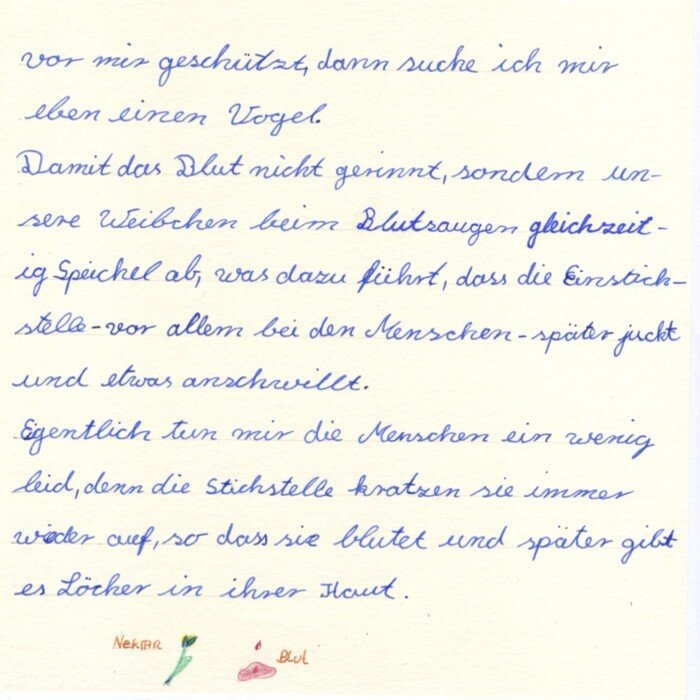 vor mir geschützt, dann suche ich mir
eben einen Vogel.
Damit das Blut nicht gerinnt, sondern un-
sere Weibchen beim Blutsaugen gleichzeit-
ig Speichel ab, was dazu führt, dass die Einstich-
stelle-vor allem bei den Menschen-später juckt
und etwas anschwillt.
Eigentlich tun mir die Menschen ein wenig
leid, denn die Stichstelle kratzen sie immer
wieder auf, so dass sie blutet und später gibt
es Löcher in ihrer Haut.
Nektar Blut